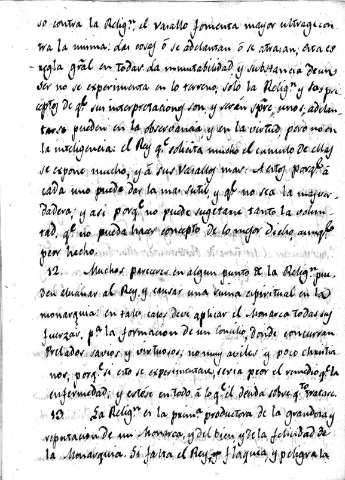 so contra la Relig.n el vasallo fomenta mayor ultrage con
tra la misma: las cosas ó se adelantan ó se atrasan, esta es
regla gral en todas: la inmutabilidad y substancia de un
ser no se experimenta en lo terreno, solo la Relig.n y sus pre
ceptos de q.e sus interpretaciones son, y serán spre. unos; adelan
tarse pueden en la observancia, y en la virtud, pero no en
la inteligencia: el Rey q.e solicita mucho el cumulo de ellas
se expone mucho, y á sus Vasallos mas: á estos porq.e á
cada uno puede dar la mas sutil, y q.e no sea la mas ver-
dadera; y asi porq.e no puede sugetarse tanto la volun-
tad, q.e no pueda hacer concepto de lo mejor dicho, aunq.e
peor hecho.
12. Muchos pareceres en algun punto de la Relig.n pue-
den dañar al Rey, y causar una ruina espiritual en la
monarquia: en tales casos deve aplicar el Monarca todas sus
fuerzas, p.a la formacion de un Concilio, donde concurran
Prelados savios y virtuosos, no muy aviles y poco christia
nos, porq.e si esto se experimentare, seria peor el remedio q.e la
enfermedad; y estese en todo á lo q.e el decida sobre q.to tratase.
13. La Relig.n es la prim.a productora de la grandeza y
reputacion de un Monarca, y del bien, y de la felicidad de
la Monarquia. Si falta el Rey, flaquea, y peligra la